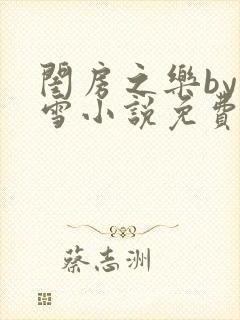 閨房之樂by
雪小說免費
蔡志洲